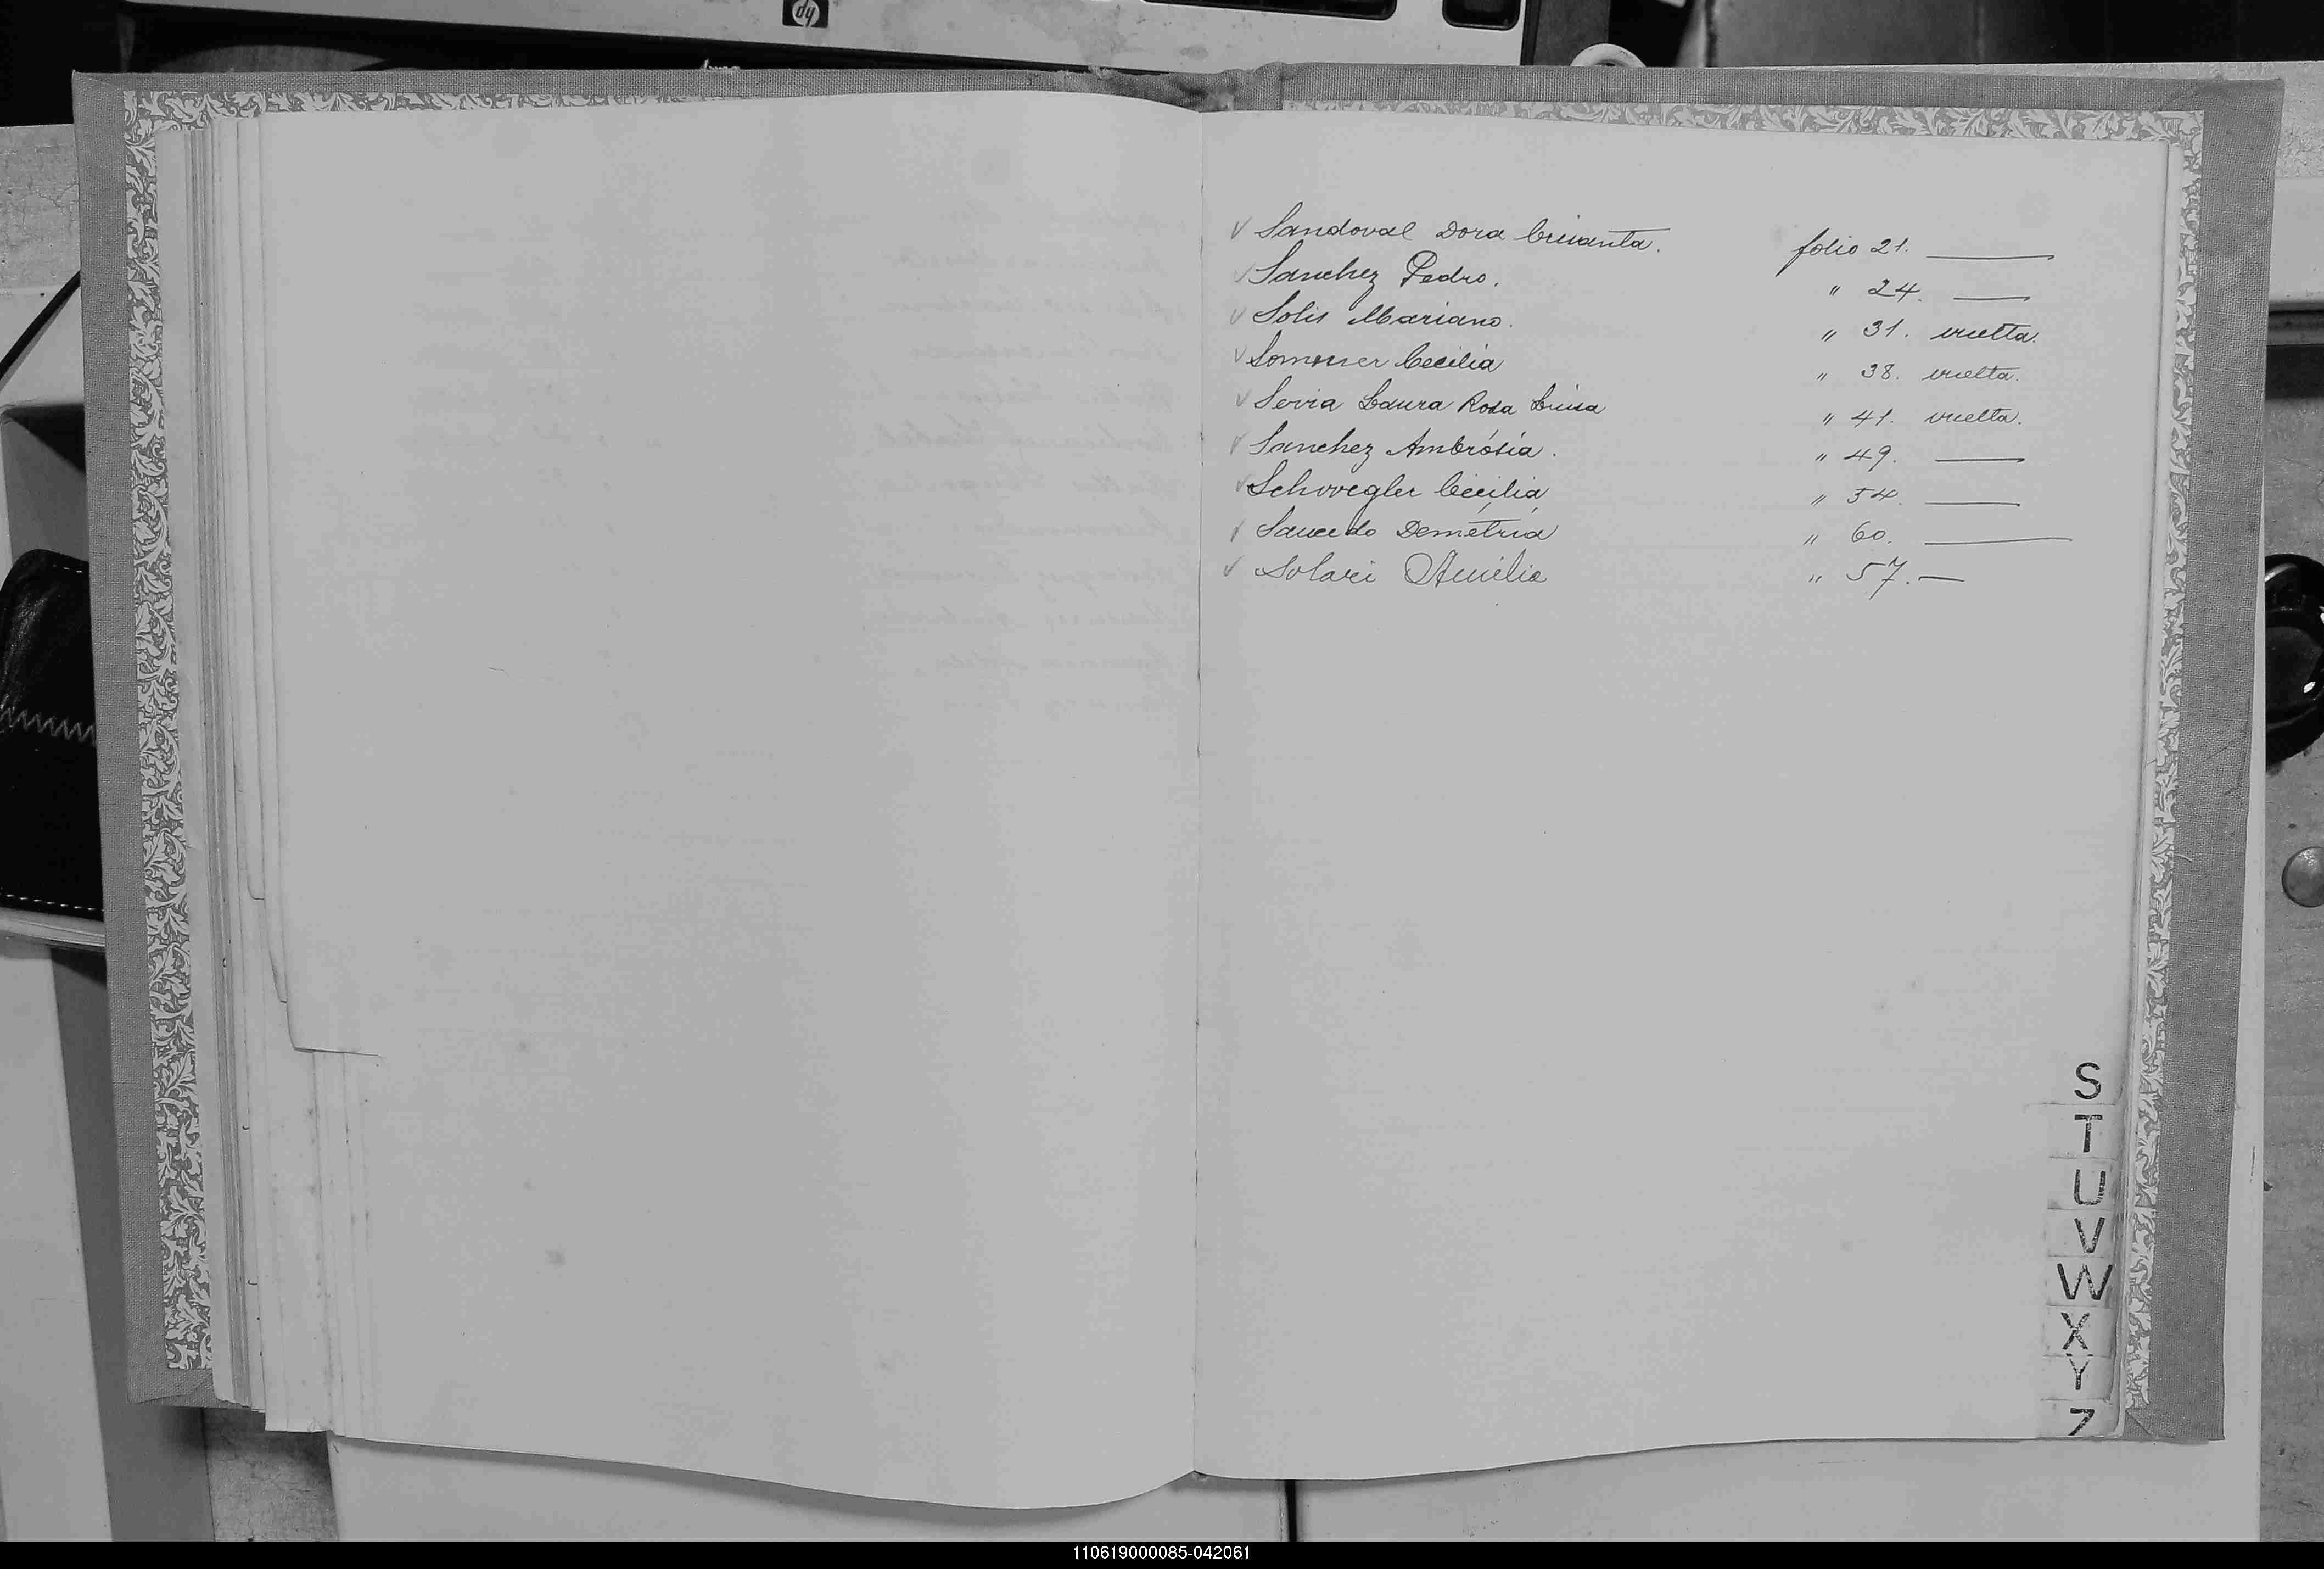 hp
✓ Sandoval Dora Crisanta. folio 21. ———
✓ Sanchez Pedro. " 24. ——
✓ Solis Mariano. " 31. vuelta.
✓ Sommer Cecilia " 38. vuelta.
✓ Laura Rosa Luisa " 41. vuelta.
✓ Sanchez Ambrósia. " 49. ———
✓ Schwegler Cecilia " 54. ———
✓ Saucedo Demetria " 60. ———
✓ Solari " 57. —
S
T
U
V
W
X
Y
Z
110619000085-042061